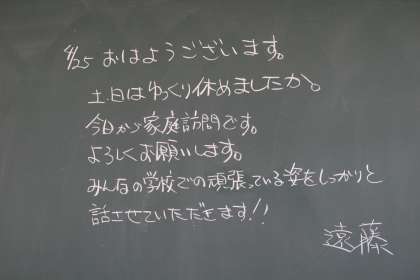 4/25 おはようございます。
土.日はゆっくり休めましたか。
今日から家庭訪問です。
よろしくお願いします。
みんなの学校での頑張っている姿をしっかりと
話させていただきます!!
遠藤